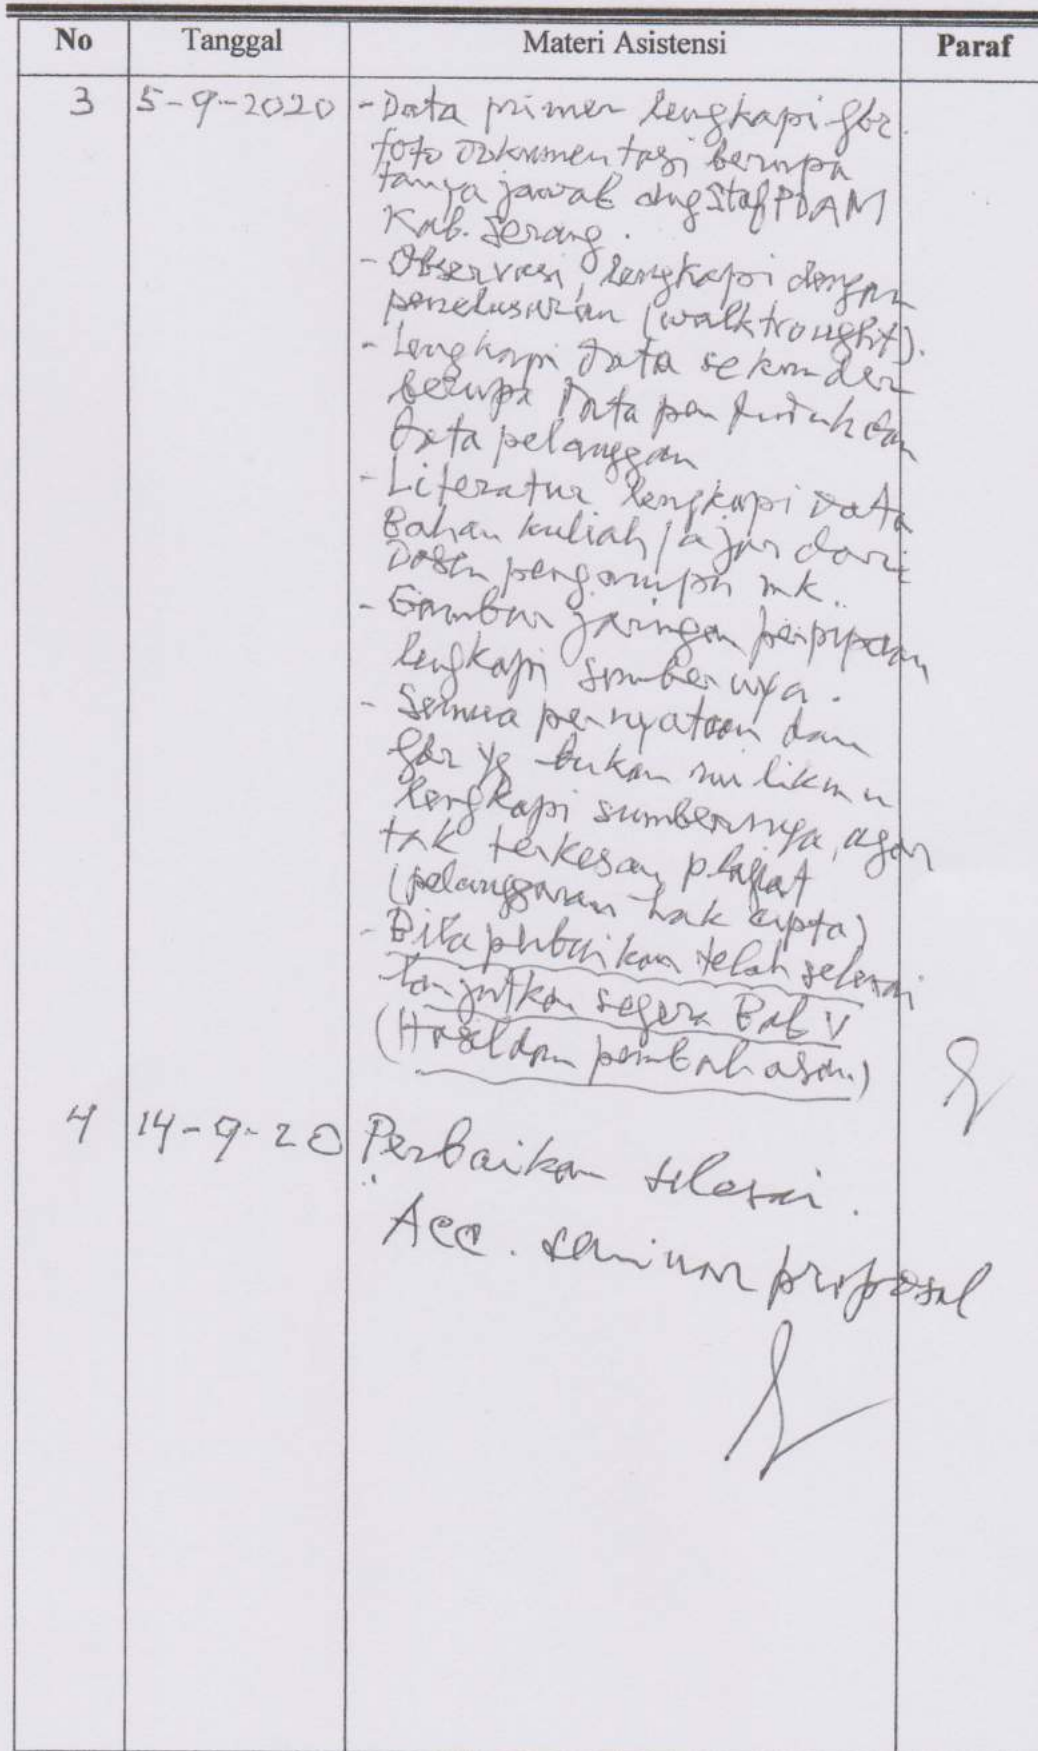 No Tanggal Materi Asistensi Paraf
3 5-9-2020 - Data primer lengkapi gbr.
foto dokumentasi berupa
tanya jawab dng Staf PDAM
Kab. Serang.
- Observasi, lengkapi dengan
penelusuran (walktrought).
- Lengkapi data sekunder
berupa Data penduduk dan
data pelanggan
- Literatur lengkapi data
Bahan kuliah / ajar dari
Dosen pengampu mk.
- Gambar jaringan perpipaan
lengkapi sumbernya.
- Semua pernyataan dan
gbr yg bukan milikmu
lengkapi sumbernya, agar
tak terkesan plagiat
(pelanggaran hak cipta)
- Bila perbaikan telah selesai
lanjutkan segera Bab V
(Hasil dan pembahasan)
4 14-9-20 Perbaikan selesai.
Acc. seminar proposal